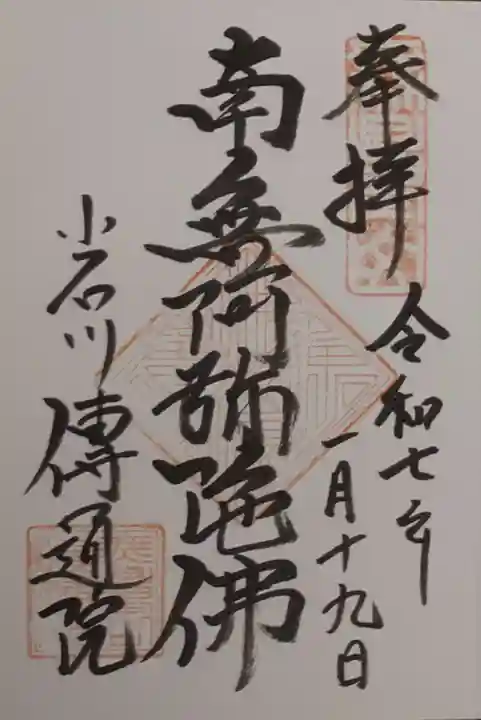 奉拝
令和七年
一月十九日
南無阿弥陀佛
小石川傳通院